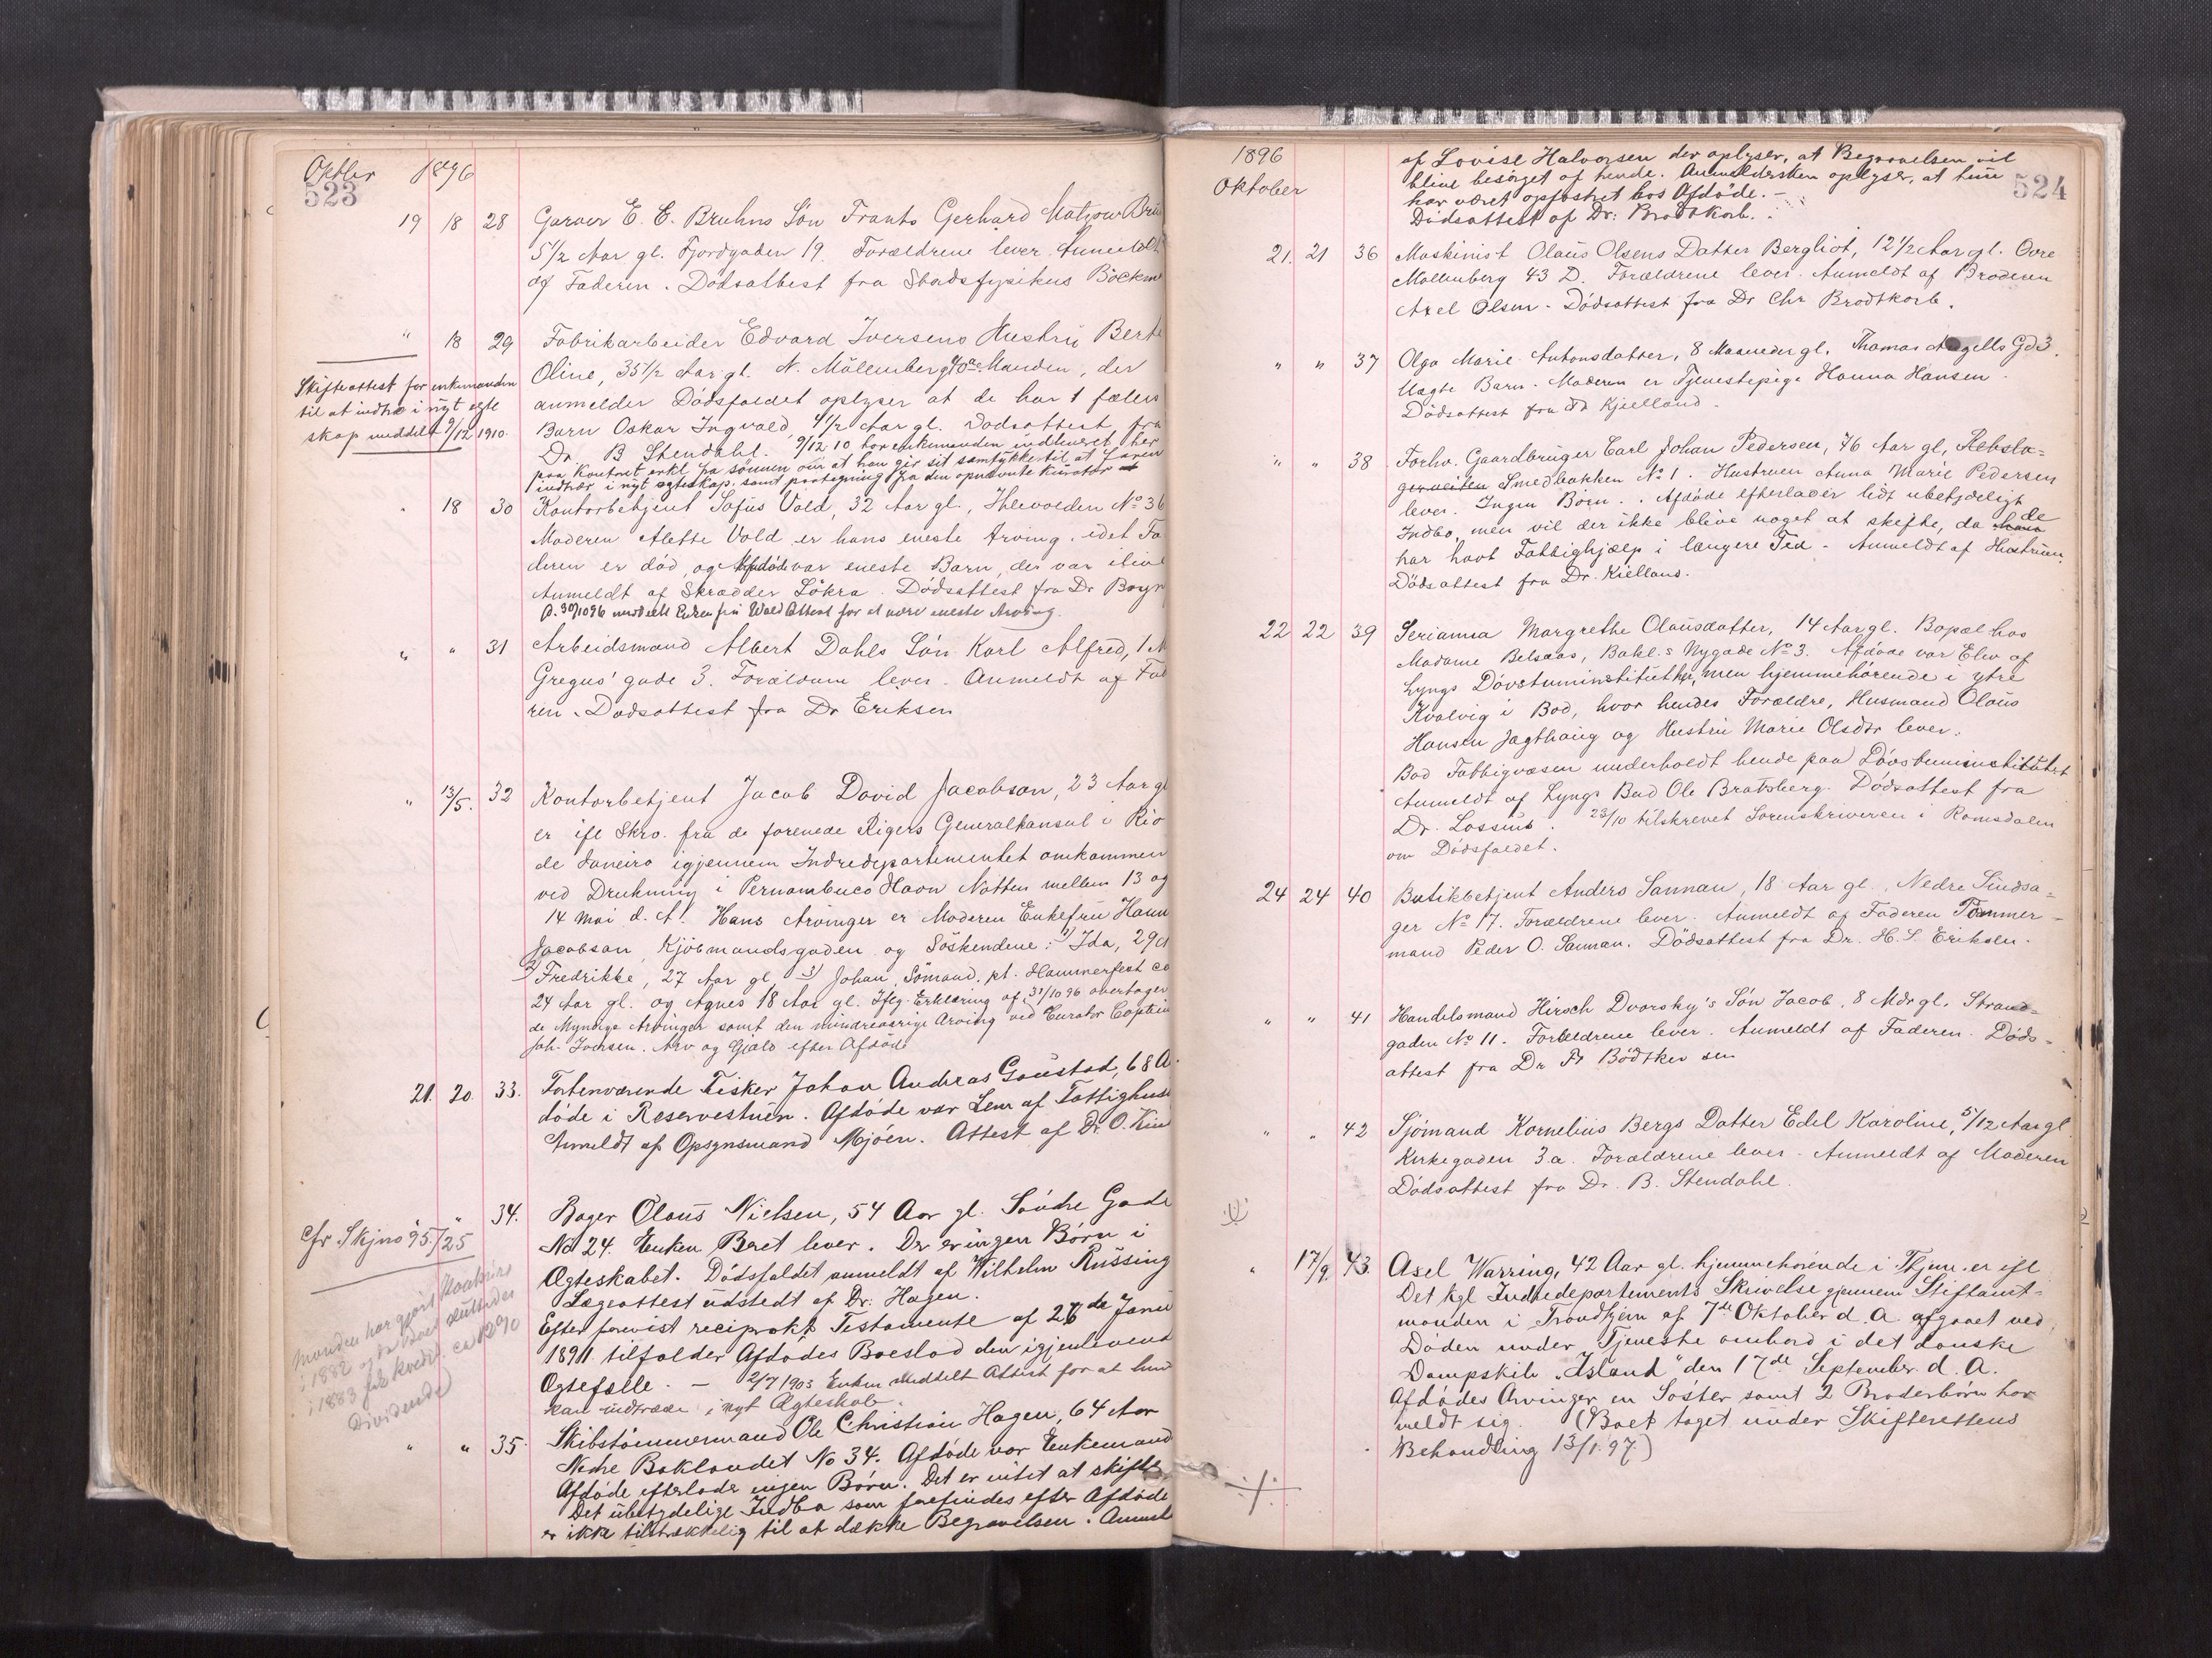 Oktbr 1896
523
19 18 28 Garver E. C. Bruhns Søn Frants Gerhard Matzow Bru
5 1/2 Aar gl. Fjordgaden 19. Forældrene lever. Anmeldt
af Faderen. Dødsattest fra Stadsfysikus Böckm
" 18 29 Fabrikarbeider Edvard Iversens Hustru Berte
Oline, 35 1/2 Aar gl. N. Möllenberg 40a Manden, der
anmelder Dødsfaldet oplyser at de har 1 fælles
Barn Oskar Ingvald, 4 1/2 Aar gl. Dødsattest fra
Dr. B Stendahl. 9/12 10 har enkemanden indleveret her
paa Kontoret erkl. fra sønnen om at han gir sit samtykke til at faren
indtrær i nyt egteskap. samt paategning fra den opnævnte kurator
Skifteattest for enkemanden
til at indtræ i nyt egte
skap meddelt 9/12 1910.
" 18 30 Kontorbetjent Sofus Vold, 32 Aar gl., Ihlevolden No 36
Moderen Alette Vold er hans eneste Arving, idet Fa
deren er død, og Afdøde var eneste Barn, der var ilive
Anmeldt af Skrædder Løkra. Dødsattest fra Dr Boyn
D. 30/10 96 meddelt Enkefru Wold Attest for at være eneste Arving.
" " 31 Arbeidsmand Albert Dahls Søn Karl Alfred, 1 M
Gregus' gade 3. Forældrene lever. Anmeldt af Fad
ren. Dødsattest fra Dr Eriksen
" 13/5. 32 Kontorbetjent Jacob David Jacobson, 23 Aar gl
er ifl Skrv. fra de forenede Rigers Generalkonsul i Rio
de Janeiro igjennem Indredepartementet omkommen
ved Drukning i Pernambuco Havn Natten mellem 13 og
14 Mai d. A. Hans Arvinger er Moderen Enkefru Hann
Jacobson, Kjøbmandsgaden og Søskendene: 1) Ida, 29 a
2) Fredrikke, 27 Aar gl 3) Johan, Sømand, pt. Hammerfest ca
24 Aar gl. og Agnes 18 Aar gl. Iflg. Erklæring af 31/10 96 overtager
de Myndige Arvinger samt den mindreaarige Arving ved Curator Captein
Joh. Iversen. Arv og Gjæld efter Afdøde
21. 20. 33. Forhenværende Fisker Johan Andreas Goustad, 68 A
døde i Reservestuen. Afdøde var Lem af Fattighuse
Anmeldt af Opsynsmand Mjøen. Attest af Dr. O. Kin
" 34. Bager Olaus Nielsen, 54 Aar gl. Søndre Gade
No 24. Enken Beret lever. Der er ingen Børn i
Ægteskabet. Dødsfaldet anmeldt af Wilhelm Rüssing
Lægeattest udstedt af Dr. Hagen.
Efter forevist reciprokt Testamente af 26de Janu
1891 tilfalder Afdødes Boeslod den igjenlevend
Ægtefælle. — 2/7 1903 Enken meddelt Attest for at hun
kan indtræde i nyt Ægteskab.
cfr. Skjno 95./25
Manden har gjort
i 1882
i 1883 fik kredit. ca 12%
Dividende)
" " 35. Skibstømmermand Ole Christian Hagen, 64 Aar
Nedre Baklandet No 34. Afdøde var Enkemand
Afdøde efterlader ingen Børn. Det er intet at skifte,
Det übetydelige Indbo som forefindes efter Afdøde
er ikke tilstrækkelig til at dække Begravelsen. Anmel
1896
Oktober
524
af Lovise Halvorsen der oplyser, at Begravelsen vil
blive besörget af hende. Anmeldersken oplyser, at hün
har været opfostret hos Afdøde. —
Dödsattest af Dr: Brodtkorb.
21. 21 36 Maskinist Olaus Olsens Datter Bergliot, 12 1/2 Aar gl. Övre
Møllenberg 43 D. Forældrene lever. Anmeldt af Broderen
Axel Olsen. Dødsattest fra Dr Chr Brodtkorb.
" " 37 Olga Marie Antonsdatter, 8 Maaneder gl. Thomas Angells Gd 3.
Uægte Barn. Moderen er Tjenestepige Hanna Hansen.
Dødsattest fra Dr Kjelland.
" " 38 Forhv. Gaardbruger Carl Johan Pedersen, 76 Aar gl, Rebsla=
gerveiten Smedbakken No 1. Hustruen Anna Marie Pedersen
lever. Ingen Børn. Afdøde efterlader lidt ubetydeligt
Indbo, men vil der ikke blive noget at skifte, da de
har havt Fattighjælp i længere Tid. Anmeldt af Hustruen.
Dødsattest fra Dr. Kielland.
22 22 39 Serianna Margrethe Olausdatter, 14 Aar gl. Bopæl hos
Madame Belsaas, Bakl.s Nygade No 3. Afdøde var Elev af
Lyngs Døvstuminstitut her, men hjemmehørende i ytre
Kvalvig i Bod, hvor hendes Forældre, Husmand Olaus
Hansen Jagthaug og Hustru Marie Olsdtr lever.
Bod Fattigvæsen underholdt hende paa Døvstuminstitutet
Anmeldt af Lyngs Bud Ole Bratsberg. Dødsattest fra
Dr. Lossius. 23/10 tilskrevet Sorenskriveren i Romsdalen
om Dødsfaldet.
24 24 40 Butikbetjent Anders Sannan, 18 Aar gl., Nedre Sindsa=
ger No 17. Forældrene lever. Anmeldt af Faderen Tømmer=
mand Peder O. Sannan. Dødsattest fra Dr. H. S. Eriksen.
" " 41 Handelsmand Hirsch Dvorsky's Søn Jacob, 8 Mdr gl. Strand=
gaden No 11. Forældrene lever. Anmeldt af Faderen. Døds=
attest fra Dr Fr Bødtker sen
" " 42 Sjømand Kornelius Bergs Datter Edel Karoline, 5/12 Aar gl
Kirkegaden 3a. Forældrene lever. Anmeldt af Moderen
Dødsattest fra Dr. B. Stendahl.
" 17/9 43. Axel Warring, 42 Aar gl. hjemmehørende i Thjem. er ifl
Det kgl Indredepartements Skrivelse gjennem Stiftamt=
manden i Trondhjem af 7de Oktober d. A. afgaaet ved
Døden under Tjeneste ombord i det danske
Dampskib „Island" den 17de September d. A.
Afdødes Arvinger en Søster samt 2 Broderbørn har
meldt sig. (Boet taget under Skifterettens
Behandling 13/1. 97.)